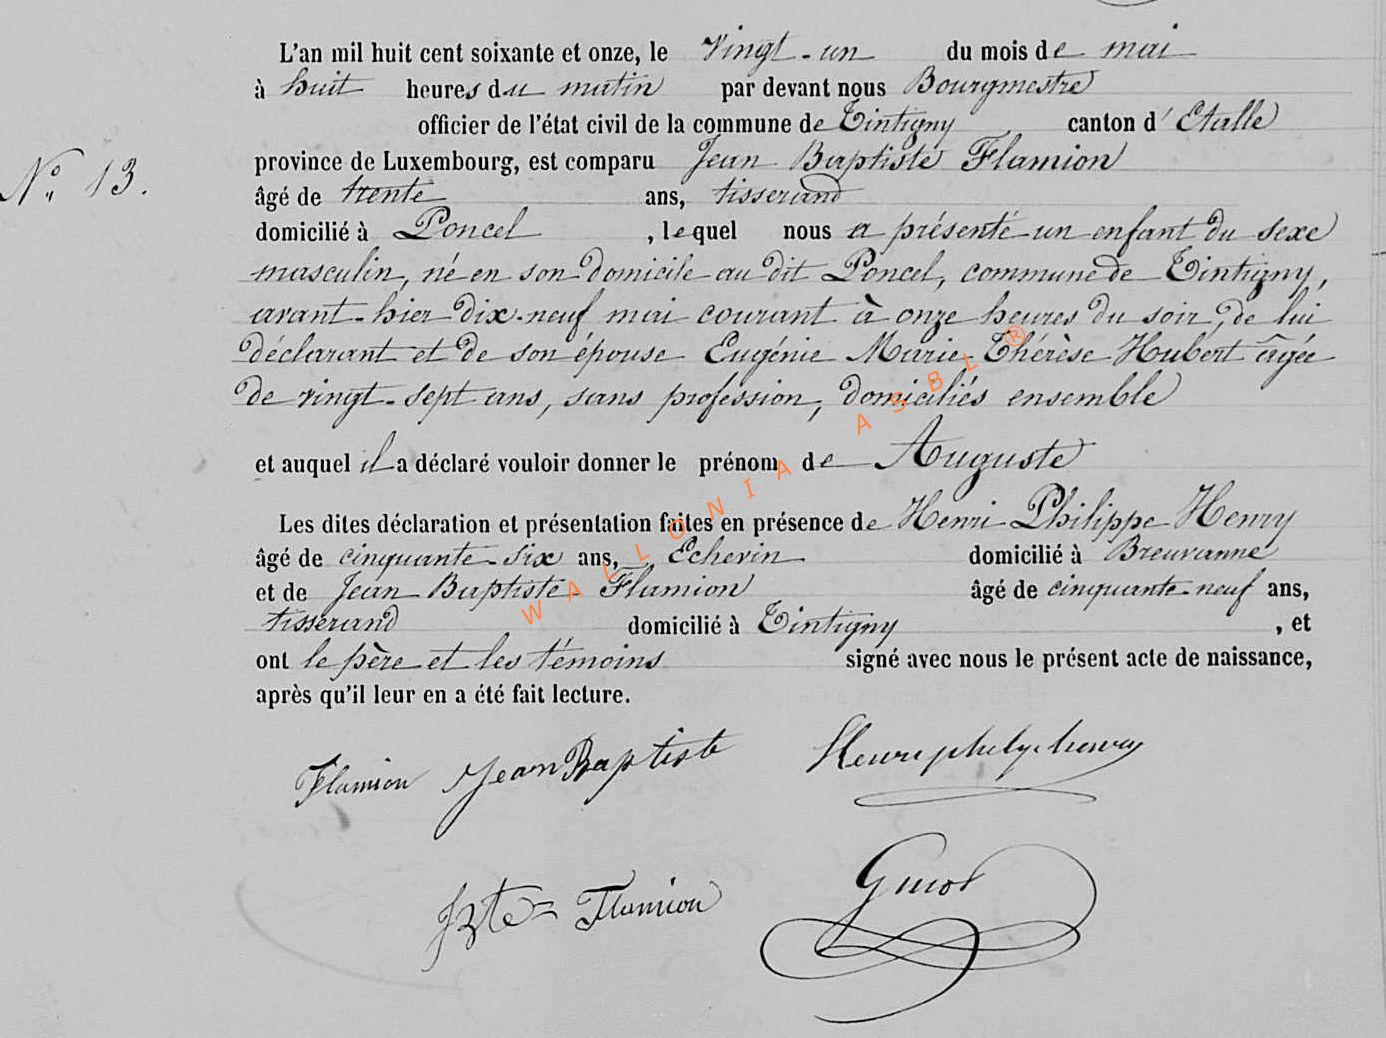 L'an mil huit cent soixante et onze, le vingt-un du mois de mai
à huit heures du matin par devant nous Bourgmestre
officier de l'état civil de la commune de Tintigny canton d'Etalle
N° 13.
province de Luxembourg, est comparu Jean Baptiste Flamion
âgé de trente ans, tisserand
domicilié à Poncel, lequel nous a présenté un enfant du sexe
masculin, né en son domicile au dit Poncel, commune de Tintigny,
avant-hier dix-neuf mai courant à onze heures du soir, de lui
déclarant et de son épouse Eugénie Marie Thérèse Hubert âgée
de vingt-sept ans, sans profession, domiciliés ensemble
et auquel il a déclaré vouloir donner le prénom de Auguste
Les dites déclaration et présentation faites en présence de Henri Philippe Henry
âgé de cinquante-six ans, Echevin domicilié à Breuvanne
et de Jean Baptiste Flamion âgé de cinquante-neuf ans,
tisserand domicilié à Tintigny, et
ont le père et les témoins signé avec nous le présent acte de naissance,
après qu'il leur en a été fait lecture.
Flamion Jean Baptiste
Flamion
WALLONIA ASBL ®